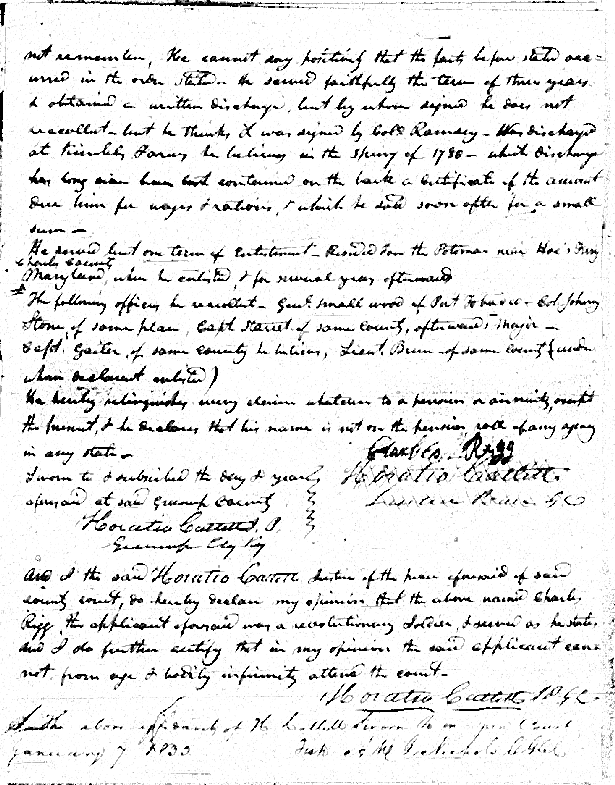 not remember, He cannot say positively that the facts before stated occ-
urred in the order Stated. He served faithfully the term of three years
& obtained a written discharge, but by whom signed he does not
recollect - but he thinks it was signed by Coll Ramsey - Was discharged
at he believes in the Spring of 1780 - which discharge
has long since been lost contained on the back a Certificate of the amount
due him for wages & rations, & which he sold soon after for a small
sum -
He served but one term of Enlistment - Resided on the Potomac near Hoe's Ferry
Charles County
Maryland, when he enlisted, & for several years afterwards
The following officers he recollects - Genl Smallwood of Port Tobacco - Col Johny
Stone, of same place, Capt of same County, afterwards Major -
Capt. of same County he believes, Lieut of same County (under
whom declarant enlisted)
He hereby relinquishes every claim whatever to a pension or annuity, except
the present, & he declares that his name is not on the pension roll of any agency
in any state -
Charles Rigg
Sworn to & subscribed the day & year
Horatio Catlett
aforesaid at said Greenup County
Horatio Catlett J. P.
Greenup Cty Ky
And I the said Horatio Catlett Justice of the peace aforesaid of said
county court, do hereby declare my opinion that the above named Charles
Rigg the applicant aforesaid was a revolutionary Soldier, & served as he states
And I do further certify that in my opinion the said applicant can
not from age & bodily infirmity attend the court -
Horatio Catlett
above of H Catlett
January 7 1833